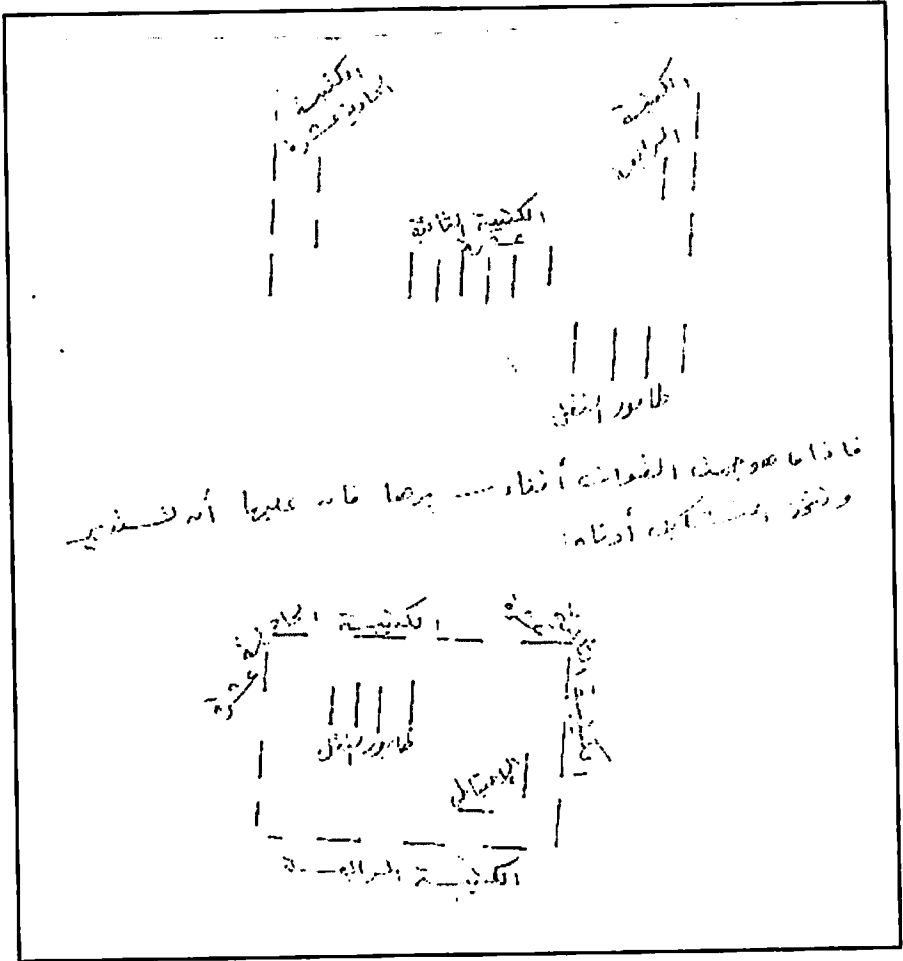 الكتيبة
الحادية عشرة
الكتيبة
الرابعة
الكتيبة الثانية
عشرة
طابور النقل
فاذا ما هوجمت القوات أثناء سيرها فان عليها أن تستدير
وتتخذ الشكل أدناه:
الكتيبة الحادية
عشرة
طابور النقل
الاحتياطي
الكتيبة الرابعة